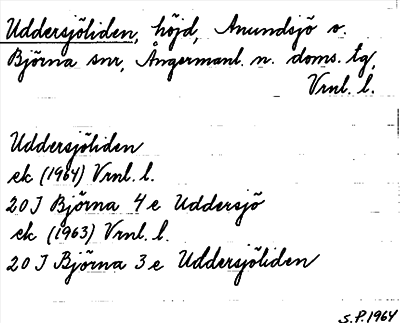 Uddersjöliden, höjd, Anundsjö o.
Björna snr, Ångermanl. n. doms. tg,
Vrnl. l.
Uddersjöliden
ek (1964) Vrnl. l.
20 J Björna 4 e Uddersjö
ek (1963) Vrnl. l.
20 J Björna 3 e Uddersjöliden
S.P. 1964